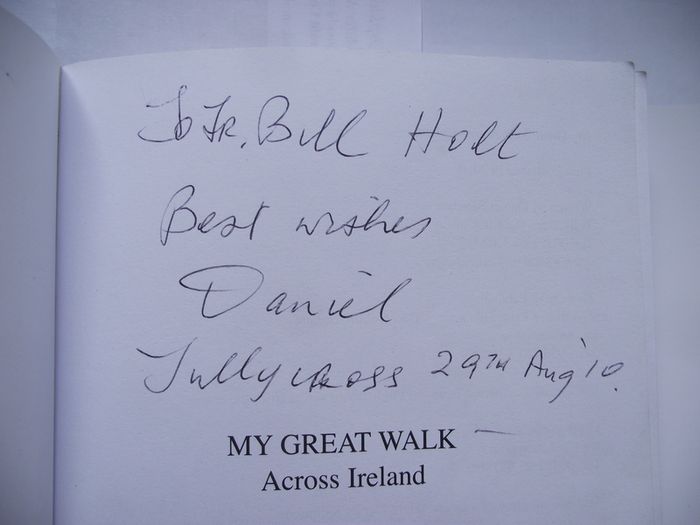 To Fr. Bill Holt
Best wishes
Daniel
Tullycross 29TH Aug '10.
MY GREAT WALK
Across Ireland